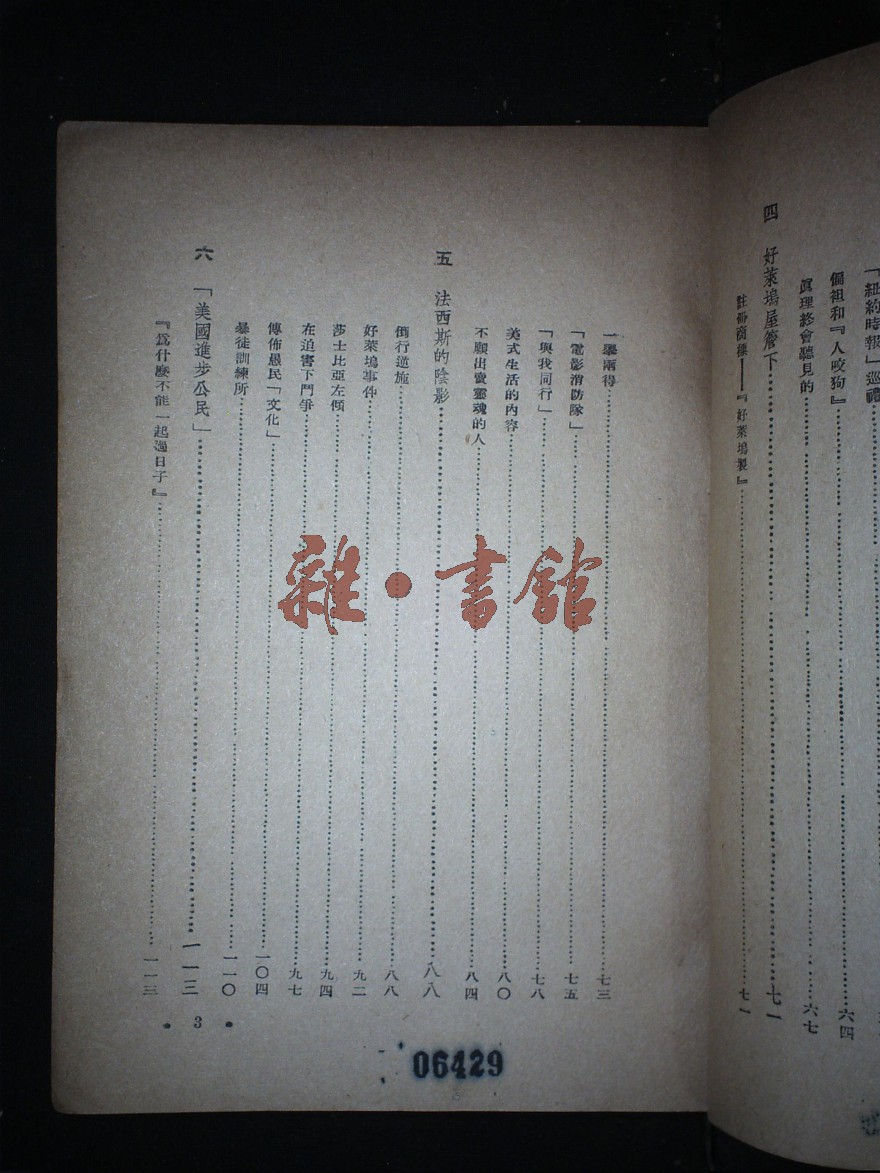 「紐約時報」巡禮
個祖和『人咬狗』……六四
眞理終會聽見的……六七
四 好萊塢屋簷下……七一
註冊商標——『好萊塢製』……七一
一舉兩得……七三
「電影消防隊」……七五
「與我同行」……七八
美式生活的內容……八〇
不願出賣靈魂的人……八四
五 法西斯的陰影……八八
倒行逆施……八八
好萊塢事件……九二
莎士比亞左傾……九四
在迫害下鬥爭……九七
傳佈愚民「文化」……一〇四
暴徒訓練所……一一〇
六 「美國進步公民」……一一三
『爲什麽不能一起過日子』……一一三
• 3 •
雜•書館
06429